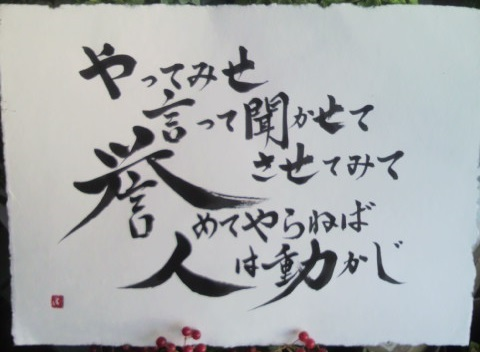 やってみせ
言って聞かせて
させてみて
誉めてやらねば
人は動かじ